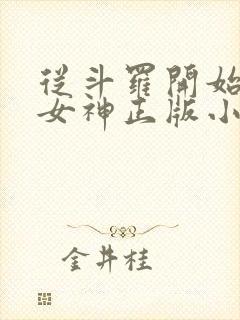 從斗羅開始
女神正版小
金井桂